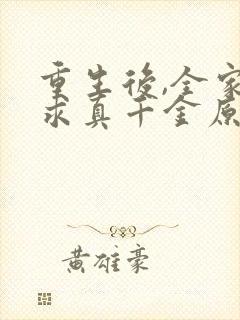 重生後,全家
求真千金原
黃雄豪